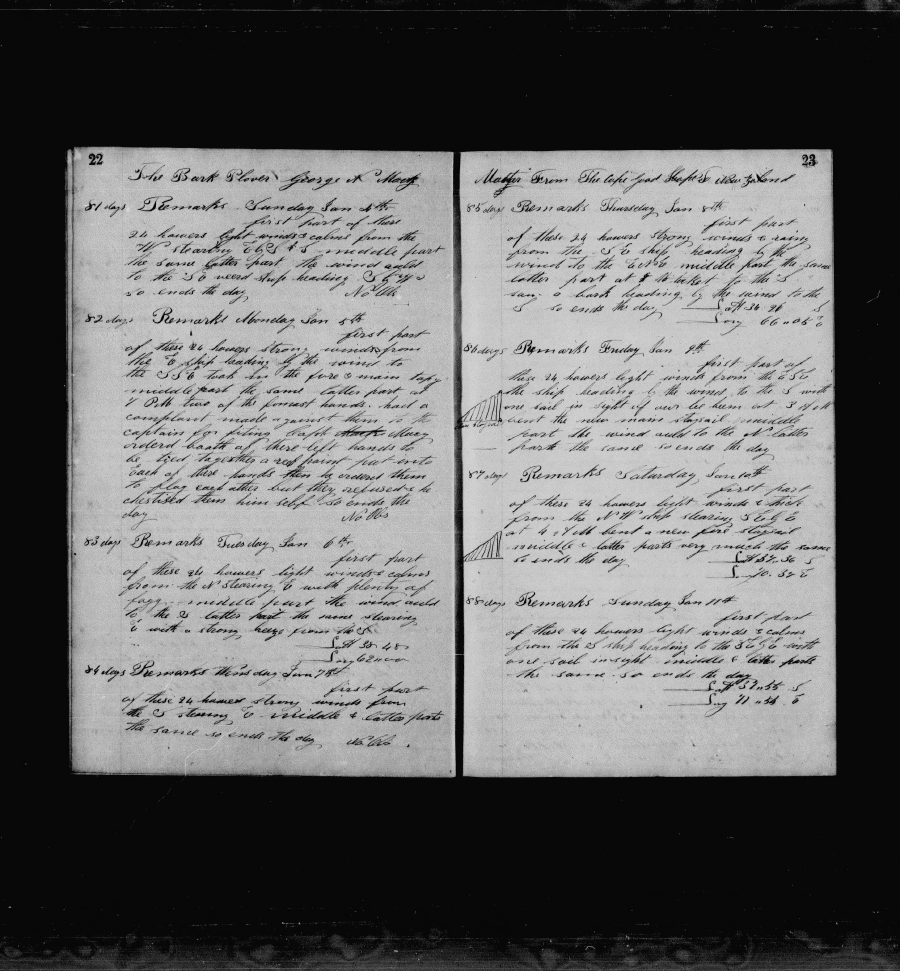 22
The Bark Plover George N Macy
81 days Remarks Sunday Jan 4th
first part of these
24 howers light winds & calms from the
W stearing E b S & S middle part
the same latter part the wind auld
to the SE ward ship heading S by W
so ends the day No Obs
82 days Remarks Monday Jan 5th
first part
of these 24 howers strong winds from
the E ship heading by the wind to
the SSE took in the fore & main topg
middle part the same latter part at
PM two of the formast hands had a
complaint made against them to the
captain for Macy
ordered booth of there left hands to
be tied together a red paint put into
each of there hands then he ordered them
to flog each other but they refused & he
chestised them him self so ends the
day No Obs
83 days Remarks Tuesday Jan 6th
first part
of these 24 howers light winds & calms
from the N stearing E with plenty of
fogg middle part the wind auld
to the S latter part the same stearing
E with a strong breeze from the S
Lat 38 48
Long 62 00
84 days Remarks Wensday Jan 7th
first part
of these 24 howers strong winds from
the S stearing E middle & latter parts
the same so ends the day No Obs
23
From The Cape Good Hope To New Zeland
85 days Remarks Thursday Jan 8th
first part
of these 24 howers strong winds & rainy
from the SE ship heading by the
wind to the middle part the same
latter part at 4 to the S
saw a bark heading by the wind to the
S so ends the day Lat 36 26 S
Long 66 05 E
86 days Remarks Friday Jan 9th
first part of
these 24 howers light winds from the ESE
the ship heading by the wind to the S with
one sail in sight of our lee beem at 3 PM
bent the new main staysail middle
part the wind auld to the N latter
part the same so ends the day
main staysail
87 days Remarks Saturday Jan 10th
first part
of these 24 howers light winds & thick
from the NW ship stearing SE by E
at 4 PM bent a new fore staysail
middle & latter parts very much the same
so ends the day Lat 37 36 S
Long 70 32 E
88 days Remarks Sunday Jan 11th
first part
of these 24 howers light winds & calms
from the S ship heading to the SE by E with
one sail insight middle & latter parts
the same so ends the day
Lat 37 55 S
Long 71 34 E